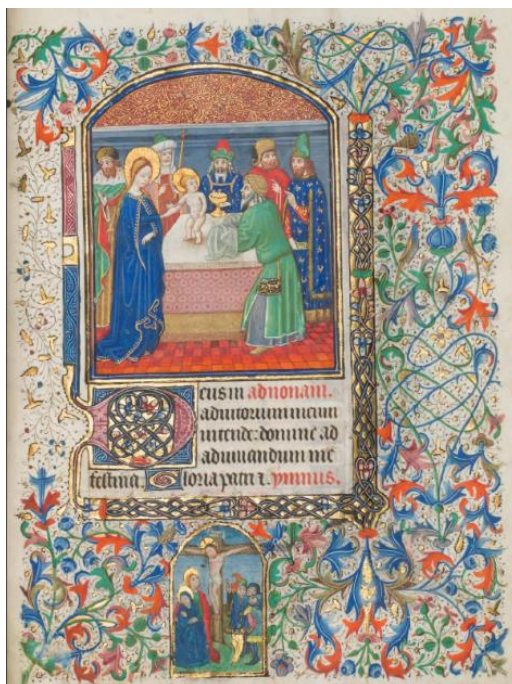 Deus in ad nonam.
adiutorium meum
intende: domine ad
adiuuandum me
festina. Gloria patri ⁊. ymnus.